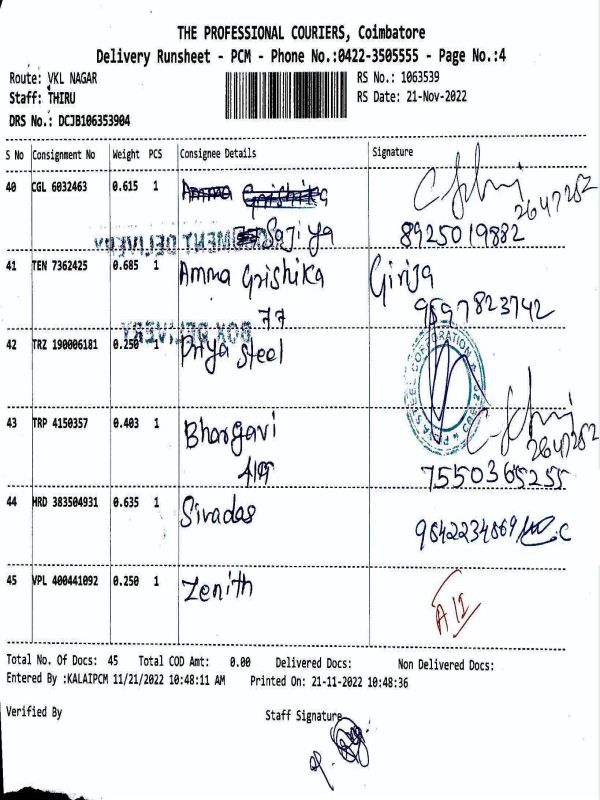 THE PROFESSIONAL COURIERS, Coimbatore
Delivery Runsheet - PCM - Phone No.:0422-3505555 - Page No.:4
Route: VKL NAGAR
RS No.: 1063539
Staff: THIRU
RS Date: 21-Nov-2022
DRS No.: DCJB106353904
S No Consignment No Weight PCS Consignee Details Signature
40 CGL 6032463 0.615 1 Amma Grishika
2647252
Sajiya 8925019882
DOCUMENT DELIVERY
41 TEN 7362425 0.685 1 Amma Grishika Girija
77 9597823742
BOX DELIVERY
42 TRZ 190006181 0.250 1 Priya steel
STEEL CORPORATION
43 TRP 4150357 0.403 1 Bhargavi
2647252
7550365255
44 HRD 383504931 0.635 1 Sivadas
9842234869
45 VPL 400441092 0.250 1 Zenith
Total No. Of Docs: 45 Total COD Amt: 0.00 Delivered Docs: Non Delivered Docs:
Entered By :KALAIPCM 11/21/2022 10:48:11 AM Printed On: 21-11-2022 10:48:36
Verified By Staff Signature